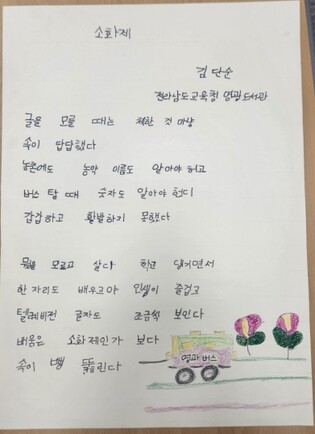 소화제
김 단순
전라남도교육청 영광도서관
글을 모를 때는 체한 것 마냥
속이 답답했다
농촌에도 농약 이름도 알아야 허고
버스 탈 때 숫자도 알아야 헌디
갑갑하고 활발하지 못했다
모르고 살다 학교 댕기면서
한 자리도 배우고야 인생이 즐겁고
텔레비전 글자도 조금씩 보인다
배움은 소화제인가 보다
속이 뻥 뚫린다
영광버스